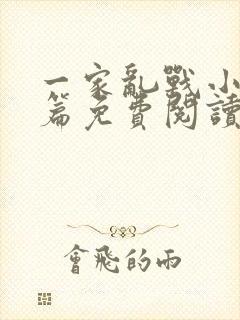 一家亂戰小
篇免費閱讀
會飛的雨